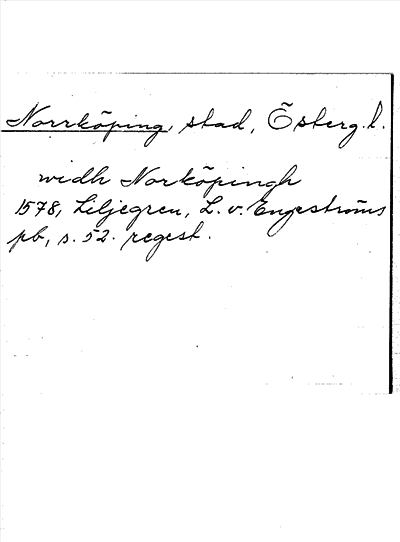 Norrköping, stad, Österg. l.
widh Norköpingh
1578, Liljegren, L. v. Engeströms
pb, s. 52. regest.